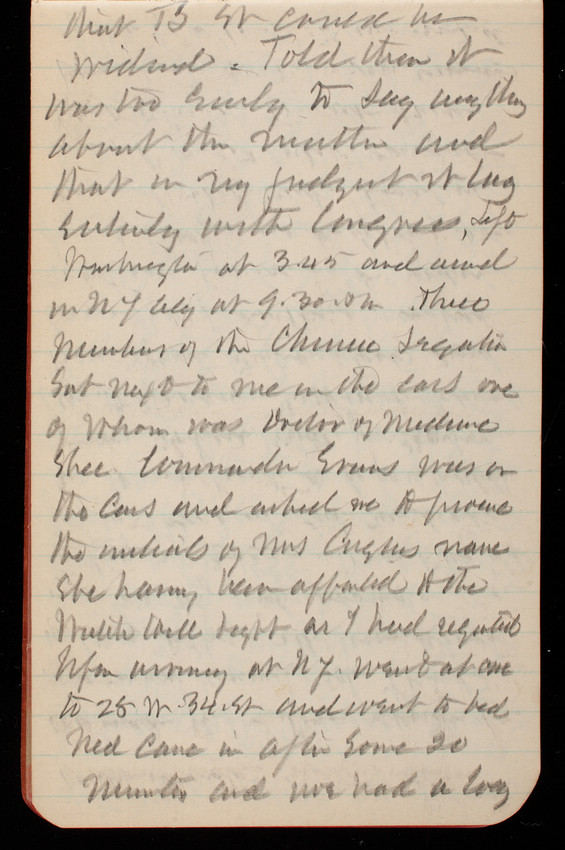 that B St could be
widened. Told them it
was too early to say anything
about the matter and
that in my judgmt it lay
entirely with Congress, Left
Washington at 3.45 and arrived
in N Y City at 9.30. Three
members of the Chinese Legation
Sat next to me in the cars one
of whom was Doctor of Medicine
Commander Evans was on
the cars and asked me to procure
the initials of Mrs name
She having been appointed to the
as I had requested
Upon arriving at N Y. Went at once
to 28 W. 34. St and went to bed
Ned came in after some 20
minutes and we had a long